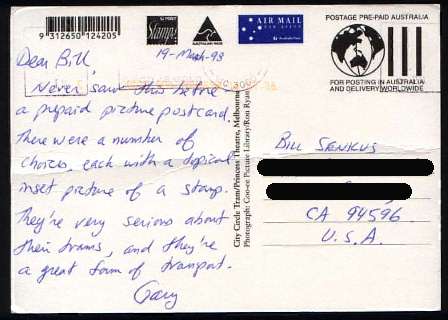 9 312650 124205
POST
Stamps
AUSTRALIAN MADE
AIR MAIL
PAR AVION
POSTAGE PRE-PAID AUSTRALIA
FOR POSTING IN AUSTRALIA
AND DELIVERY WORLDWIDE
19-March-98
Dear Bill
Never saw this before
a prepaid picture postcard.
There were a number of
choices, each with a topical
inset picture of a stamp.
They're very serious about
their trams, and they're
a great form of transport.
Gary
City Circle Tram/Princess Theatre, Melbourne
Photograph: Coo-ee Picture Library/Ron Ryan
BILL SENKUS
CA 94596
U.S.A.